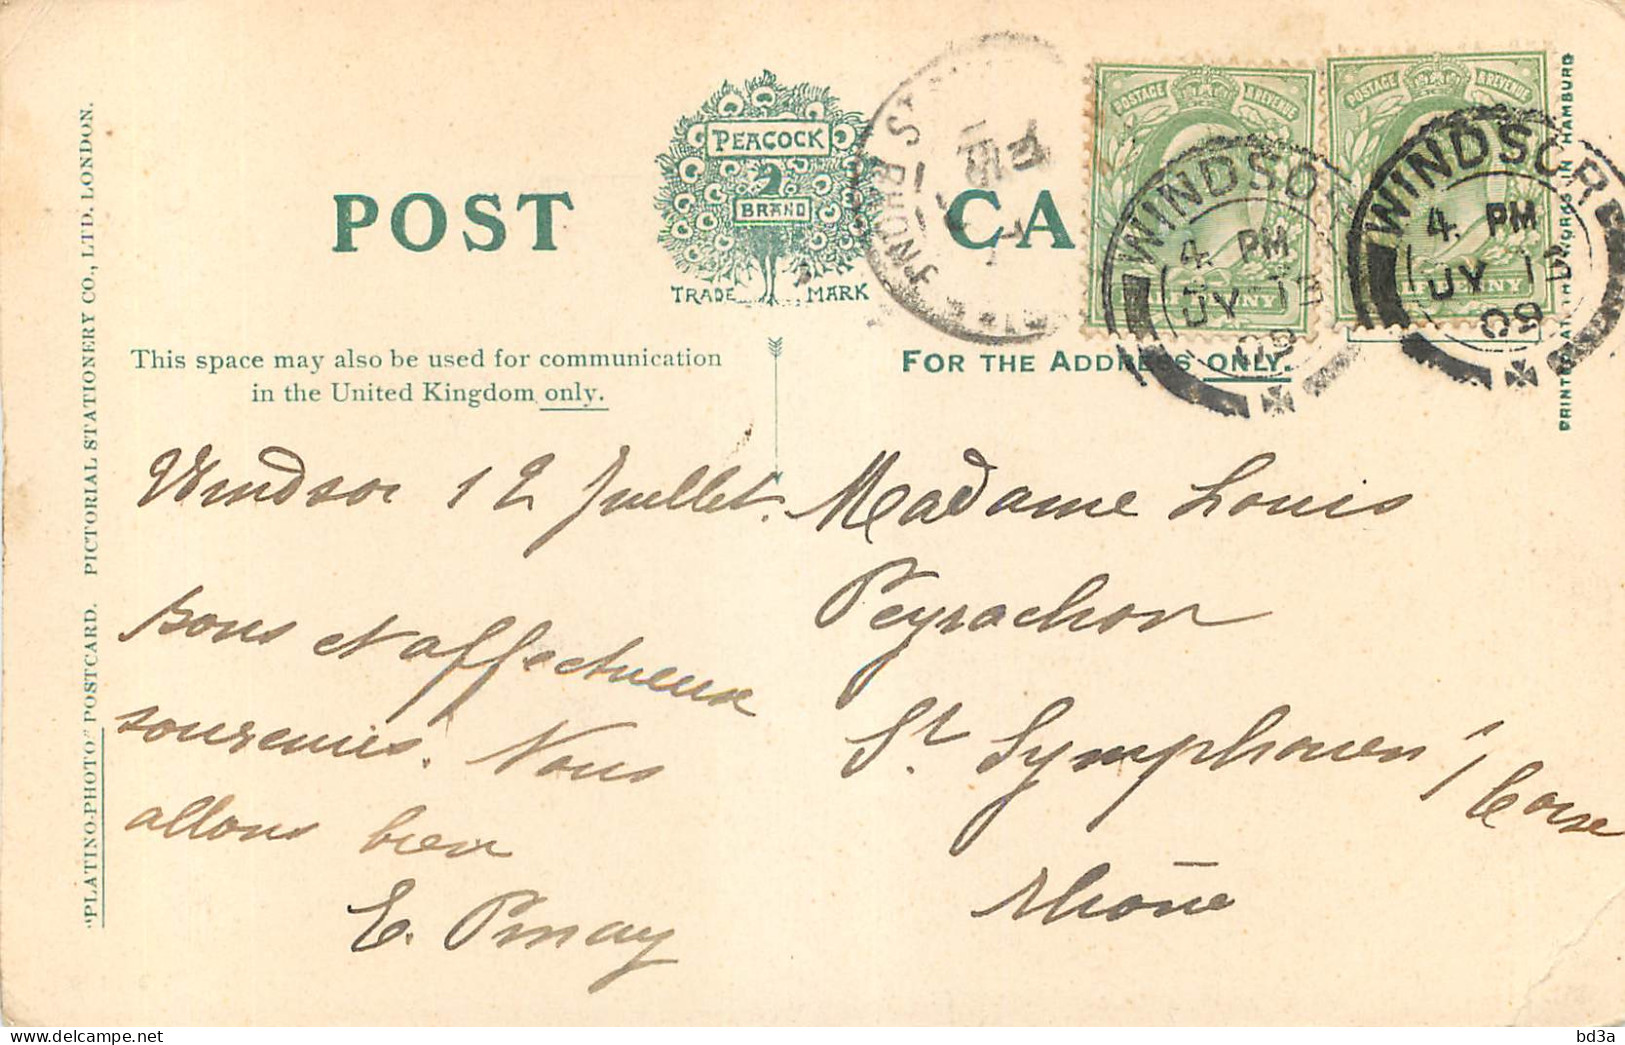 POST CA
PEACOCK
BRAND
TRADE MARK
POSTAGE & REVENUE
POSTAGE & REVENUE
WINDSOR
4. PM
JY 1
09
WINDSOR
4. PM
JY 1
09
This space may also be used for communication
in the United Kingdom only.
FOR THE ADDRESS ONLY.
"PLATINO-PHOTO" POSTCARD. PICTORIAL STATIONERY CO., LTD. LONDON.
Windsor 12 Juillet.
Bons et affectueux
souvenirs. Nous
allons bien
E. Pinay
Madame Louis
Peyrachon
St. Symphorien s/ Coise
Rhône
bd3a